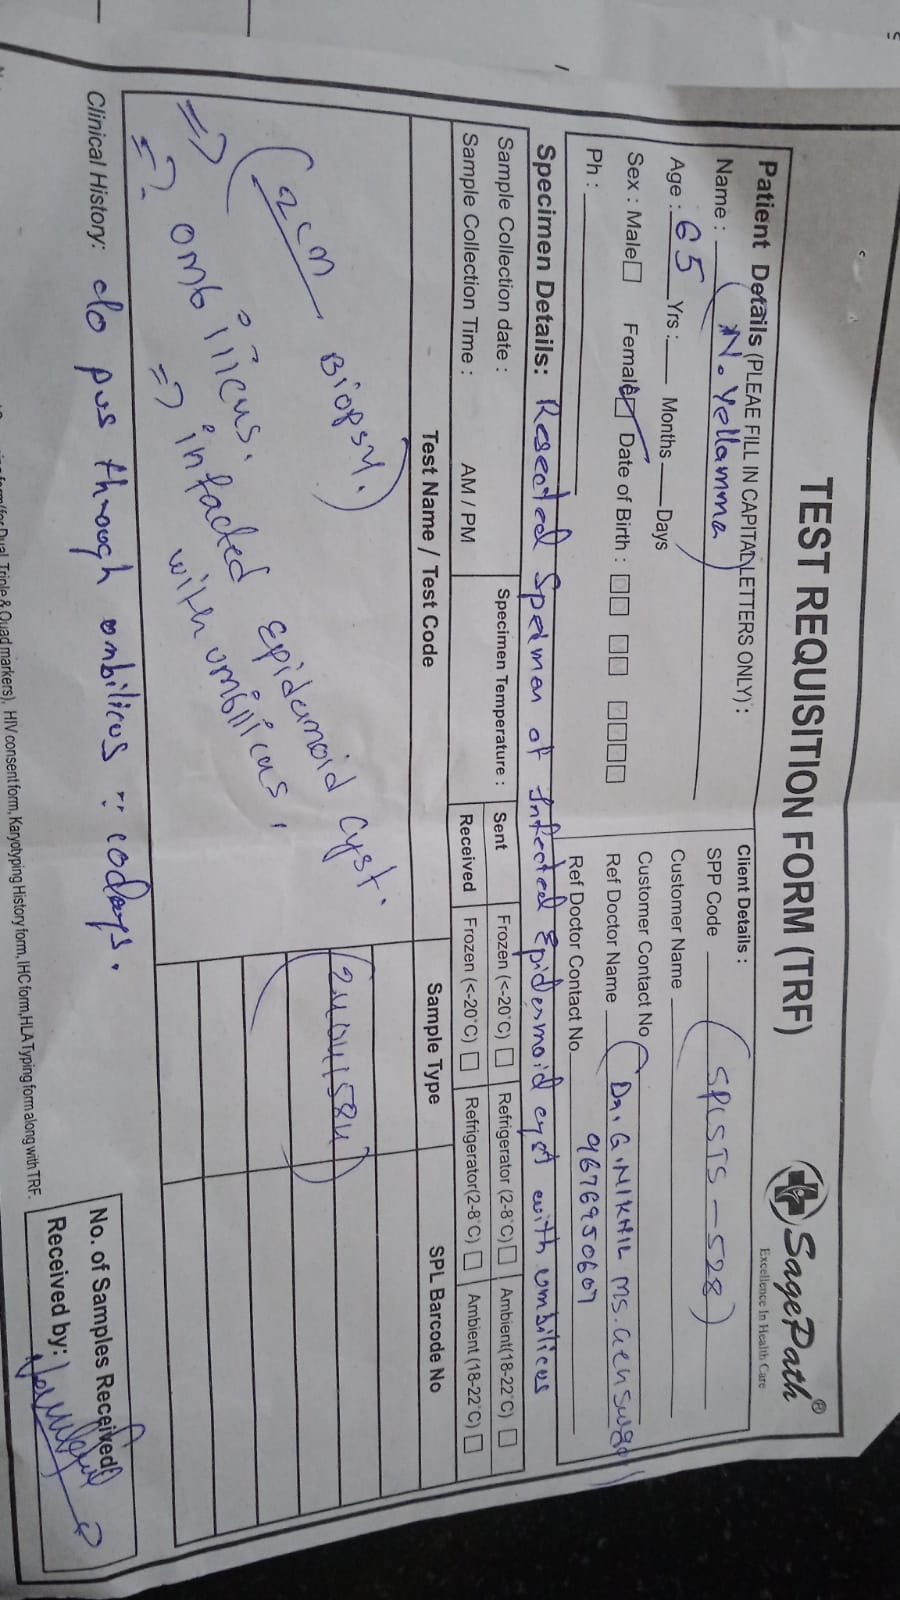 TEST REQUISITION FORM (TRF)
SagePath®
Excellence In Health Care
Patient Details (PLEAE FILL IN CAPITAL LETTERS ONLY) :
Name : N. Yellamma
Age : 65 Yrs : Months Days
Sex : Male Female Date of Birth :
Ph :
Client Details :
SPP Code SPLSTS-528
Customer Name
Customer Contact No
Ref Doctor Name Dr. G. NIKHIL MS.
Ref Doctor Contact No 9676950607
Specimen Details: Resected Speimen of Infected Epidermoid cyst with umbilicus
Sample Collection date :
Sample Collection Time : AM / PM
Specimen Temperature :
Sent Frozen (<-20°C) Refrigerator (2-8°C) Ambient(18-22°C)
Received Frozen (<-20°C) Refrigerator(2-8°C) Ambient (18-22°C)
Test Name / Test Code Sample Type SPL Barcode No
(2cm Biopsy.)
24041584
=> ombilicus. Epidemoid cyst.
=> infacted with umbilicus.
=> ?
Clinical History: c/o pus through ombilicus :: Codays.
HIV consent form, Karyotyping History form, IHC form, HLA Typing form along with TRF.
No. of Samples Received
Received by: